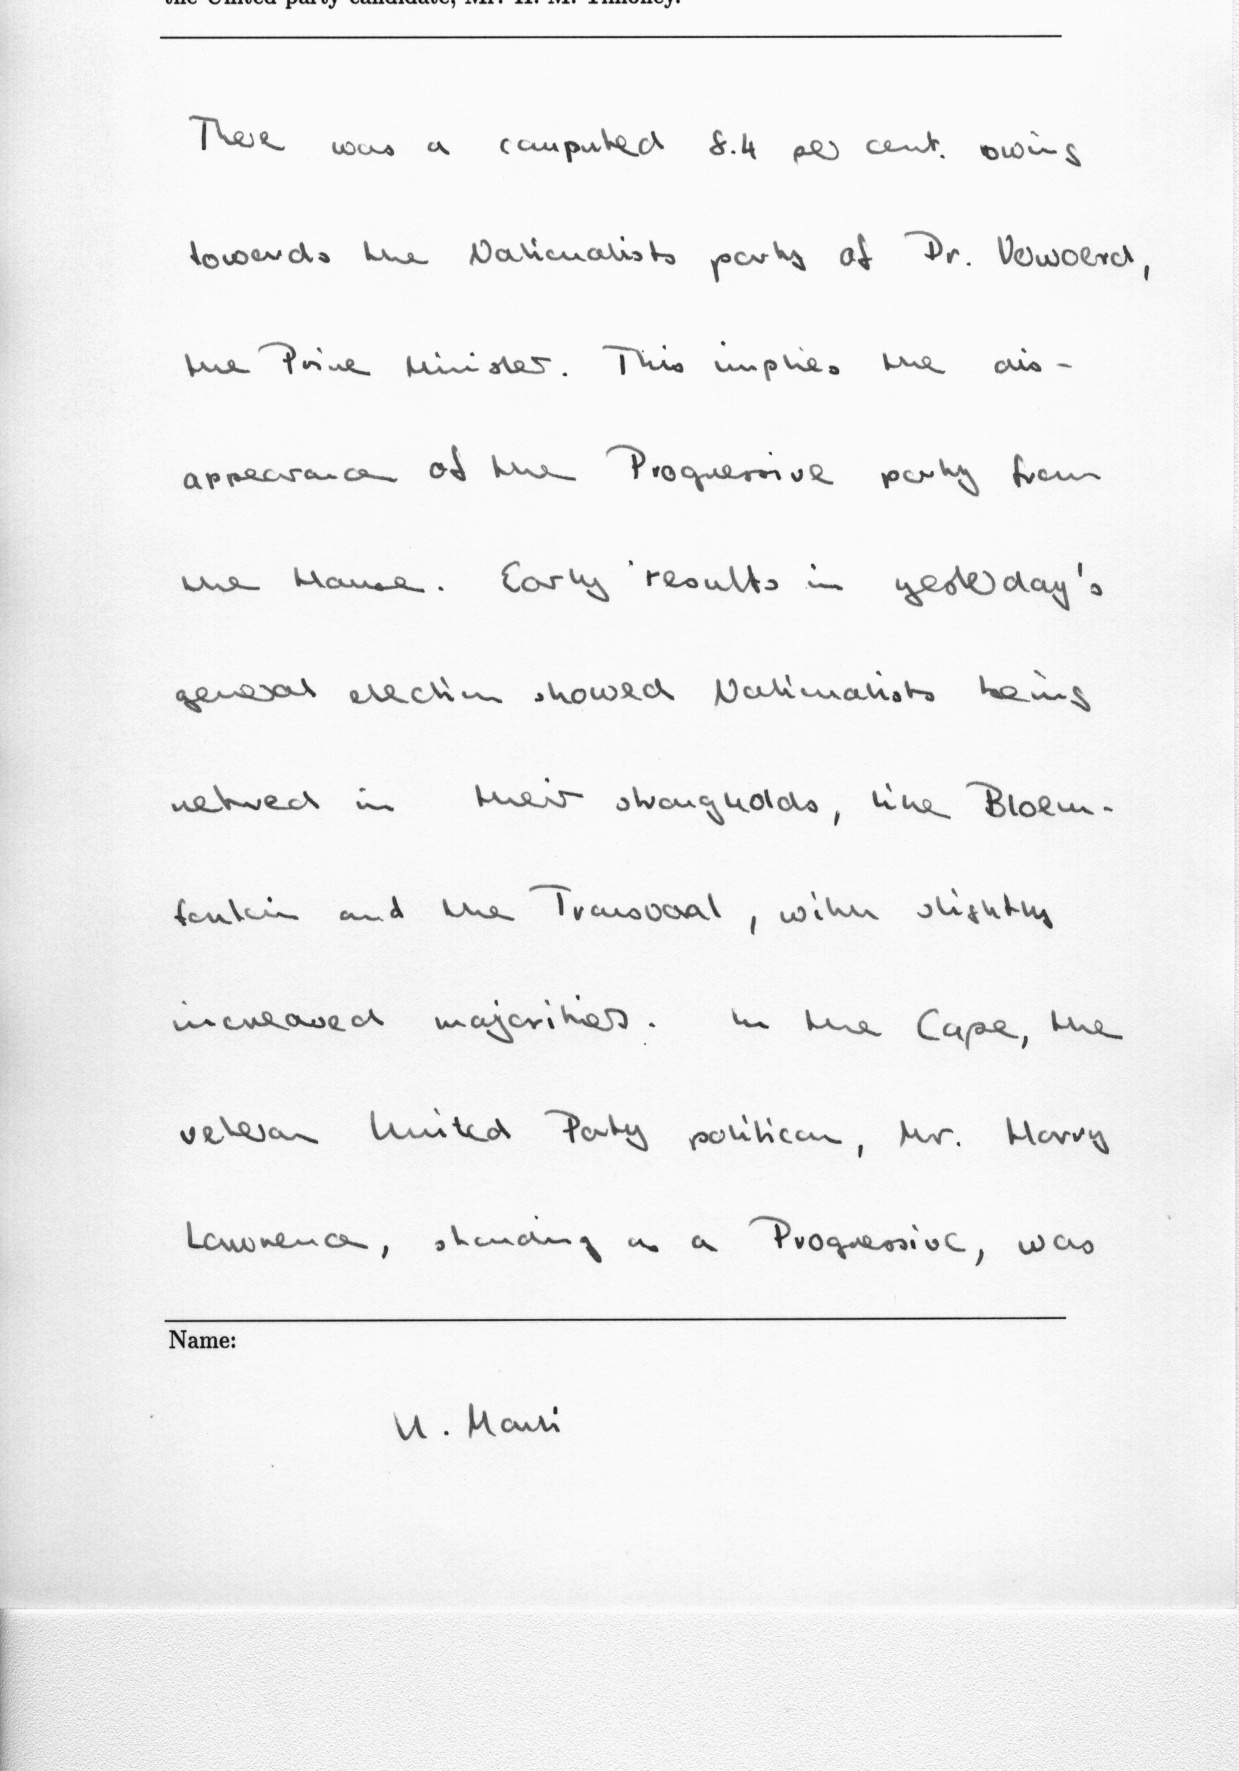 the United party candidate, Mr. H. M. Timoney.
There was a computed 8.4 per cent. swing
towards the Nationalists party of Dr. Verwoerd,
the Prime Minister. This implies the dis-
appearance of the Progressive party from
the House. Early results in yesterday's
general election showed Nationalists being
returned in their strongholds, like Bloem-
fontein and the Transvaal, with slightly
increased majorities. In the Cape, the
veteran United Party politican, Mr. Harry
Lawrence, standing as a Progressive, was
Name:
U. Marti